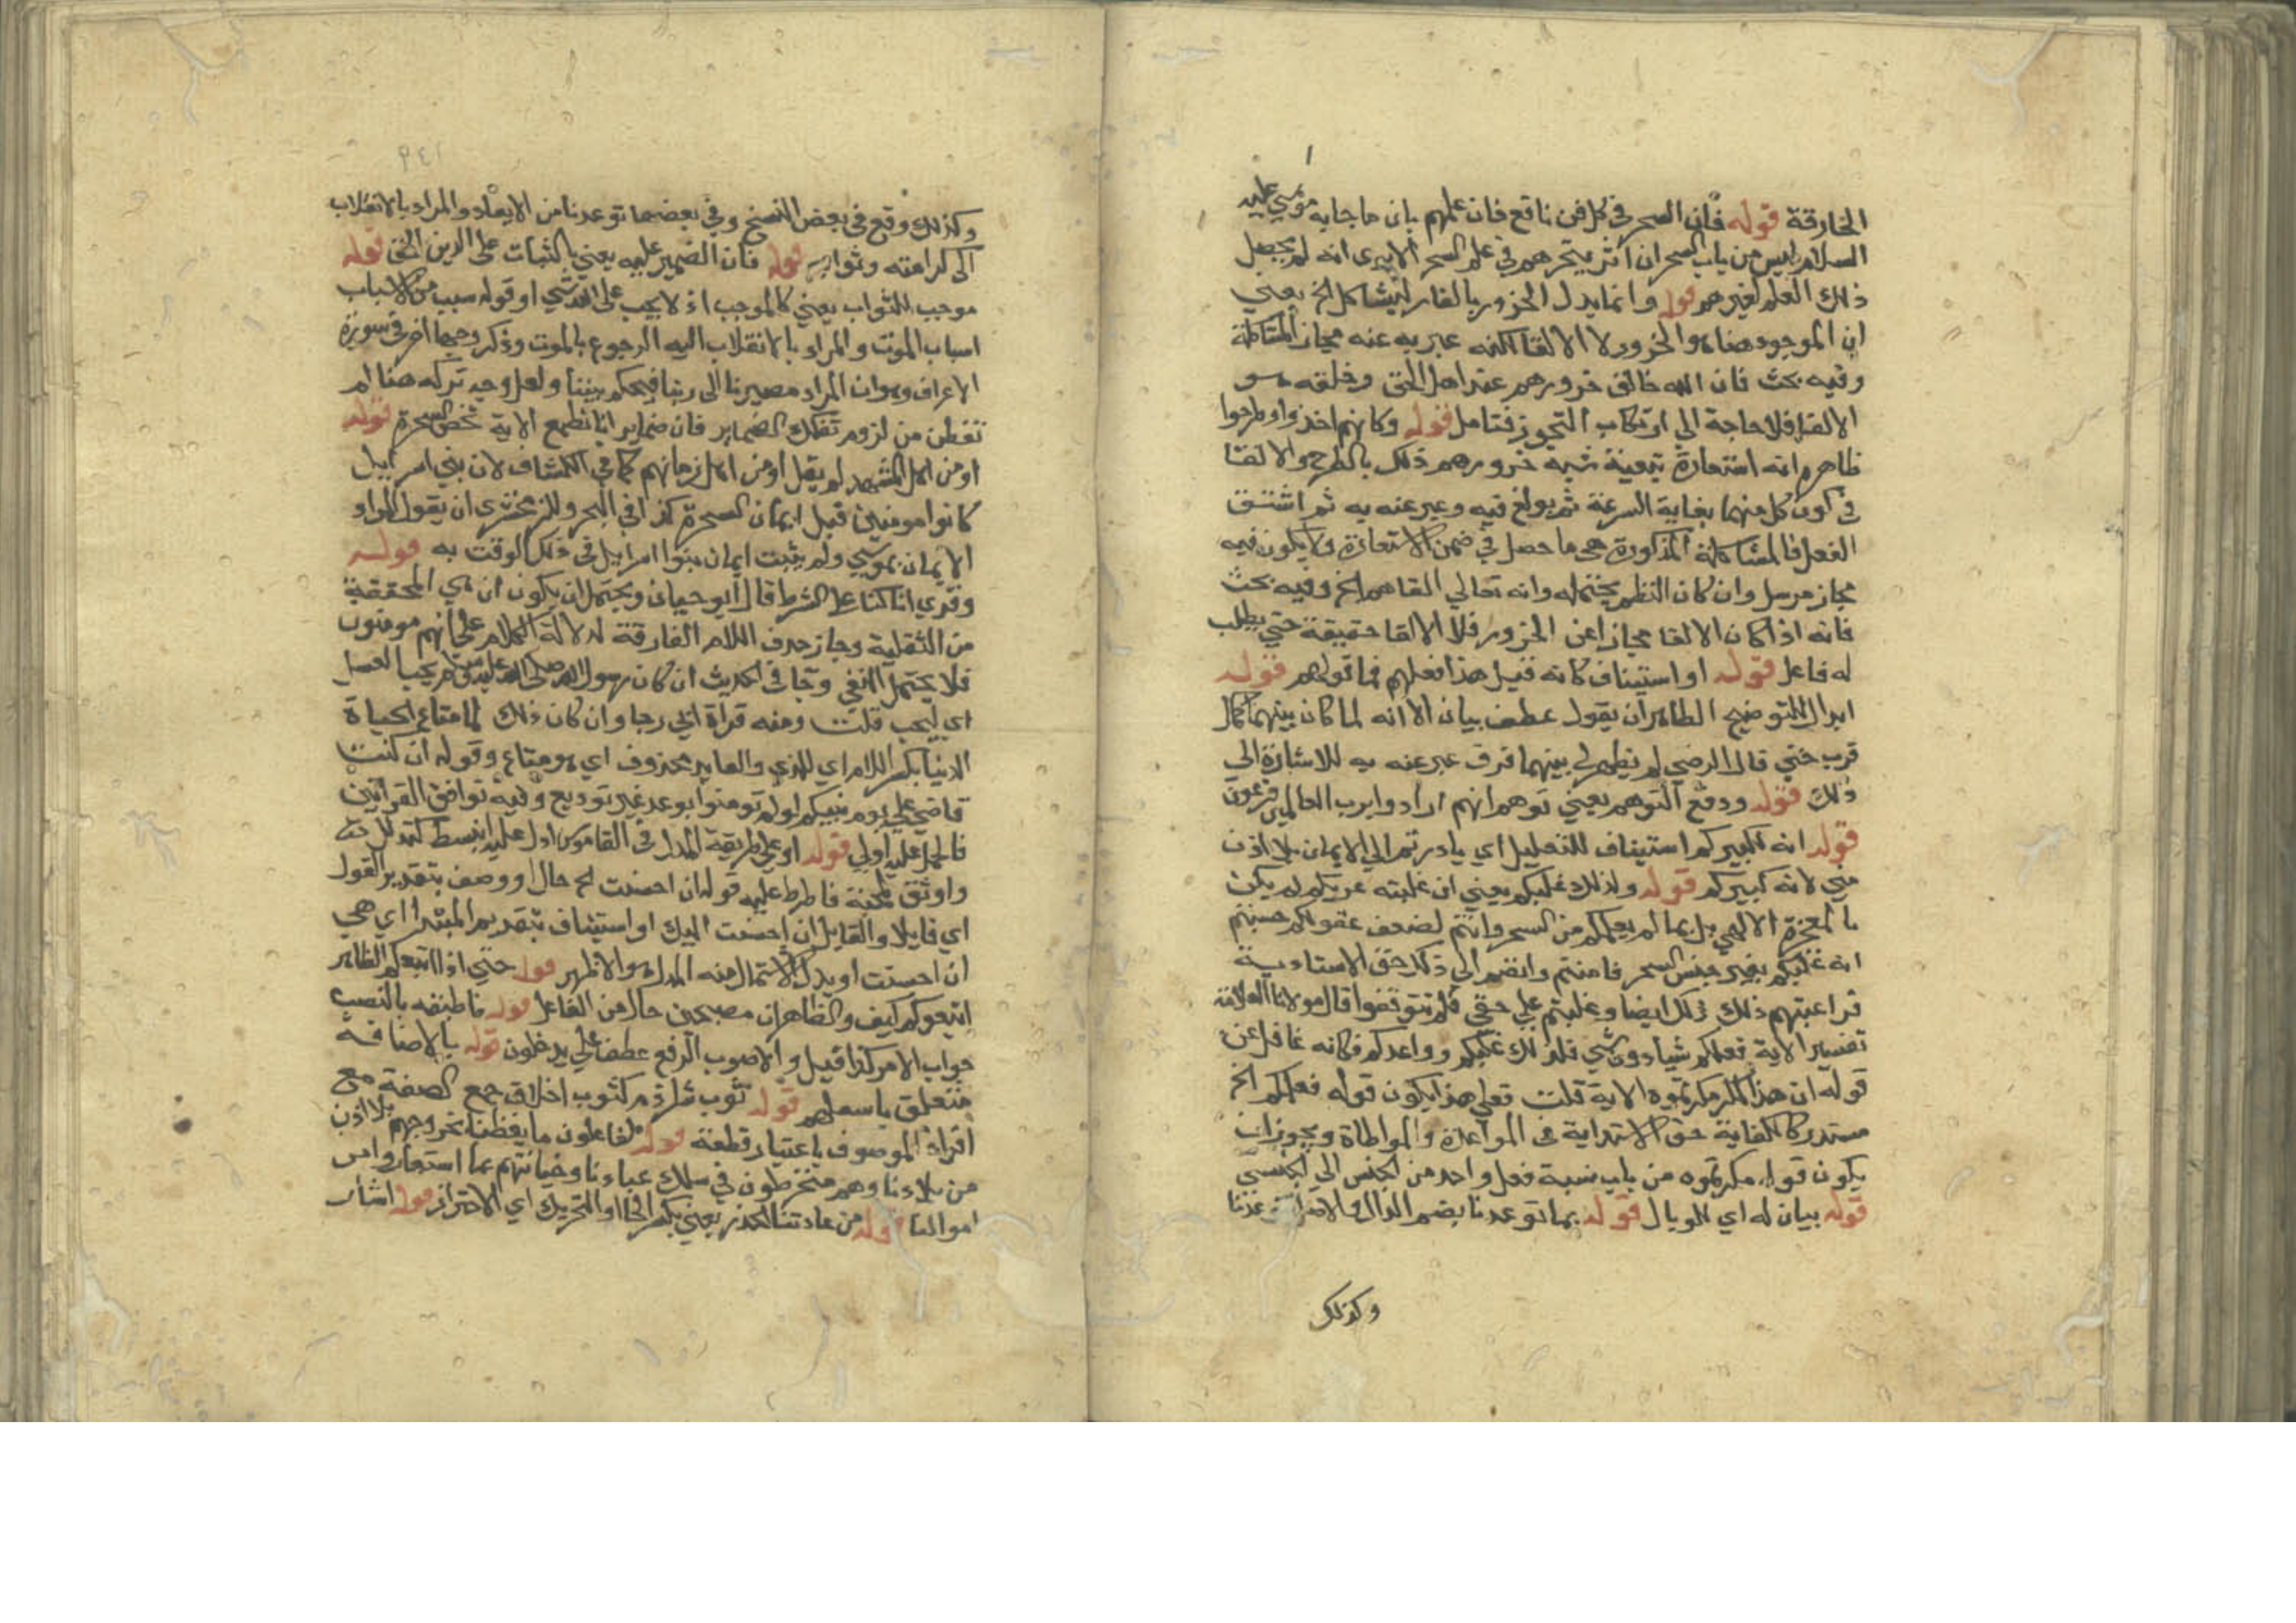 الخارقة قوله فان السحر في كل فن نافع فان علمهم بان ما جا به موسي عليه
السلام ليس من باب السحر ان اثر تبحرهم في علم السحر الا يري انه لم يحصل
ذلك العلم لغيرهم قوله وانما بدل الخرور بالقار ليشاكل الخ يعني
ان الموجود هناهو الخرور لا الالقا لكنه عبر به عنه مجاز المشاكلة
وفيه بحث فان الله خالق خرورهم عند اهل الحق وخلقه هو
الالقا فلا حاجة الي ارتكاب التجوز فتامل قوله وكانهم اخذوا وطرحوا
ظاهره انه استعارة تبعية شبه خرورهم ذلك بالطرح والالقا
في كون كل منهما بغاية السرعة ثم بولغ فيه وعبر عنه به ثم اشتق
الفعل فالمشاكلة المذكورة هي ما حصل في ضمن الاستعارة ولا يكون فيه
مجاز مرسل وان كان النظم يحتمله وانه تعالي القاهم الخ وفيه بحث
فانه اذا كان الالقا مجازا عن الخرور فلا الالقا حقيقة حتي يطلب
له فاعل قوله او استيناف كانه قيل هذا فعلهم فما قولهم قوله
ابدال للتوضيح الظاهر ان يقول عطف بيان الا انه لما كان بينهما كمال
قرب حتي قال الرضي لم يظهر لي بينهما فرق عبر عنه به للاشارة الي
ذلك قوله ودفع التوهم يعني توهم انهم ارادوا برب العالمين فرعون
قوله انه لكبيركم استيناف للتعليل اي بادرتم الي الايمان بلا اذن
مني لانه كبيركم قوله ولذلك غلبكم يعني ان غلبته عليكم لم يكن
بالمعجزة الالهي بل بما لم يعلمكم من السحر وانتم لضعف عقولكم حسبتم
انه غلبكم بغير جنس السحر فامنتم وانضم الي ذلك حق الاستادية
فراعيتم ذلك ايضا وغلبتم علي حقي فلم تتوقفوا قال مولانا العلامة
تفسير الاية فعلمكم شيا دون شي فلذلك غلبكم وواعدكم فكانه غافل عن
قوله ان هذا لمكر مكرتموه الاية قلت فعلي هذا يكون قوله فعلمكم الخ
مستدركا لكفاية حق الاستادية في المواعدة والمواطاة ويجوز ان
يكون قوله مكرتموه من باب نسبة فعل واحد من الجنس الي الجنس
قوله بيان له اي الوبال قوله بما توعدنا بضم الدال والاصل توعدننا
وكذلك
وكذلك وقع في بعض النسخ وفي بعضها توعدنا من الايعاد والمراد بالانقلاب
الي كرامته وثوابه قوله فان الضمير عليه يعني بالثبات علي الدين الحق قوله
موجب للثواب يعني كالموجب اذ لا يجب علي الله شي او قوله سبب من الاسباب
اسباب الموت والمراد بالانقلاب اليه الرجوع بالموت وذكر وجها اخر في سورة
الاعراف وهو ان المراد مصيرنا الي ربنا فيحكم بيننا ولعل وجه تركه هنا لم
تفطن من لزوم تفكك الضماير فان ضماير انا نطمع الاية تخص السحرة قوله
او من اهل المشهد لم يقل او من اهل زمانهم كما في الكشاف لان بني اسراييل
كانوا مومنين قبل ايمان السحرة كذا في البحر وللزمخشري ان يقول المراد
الايمان بموسي ولم يثبت ايمان بنوا اسراييل في ذلك الوقت به قوله
وقري ان كنا علي الشرط قال ابو حيان ويحتمل ان يكون ان هي المخففة
من الثقيلة وجاز حذف اللام الفارقة لدلالة الكلام علي انهم مومنون
فلا يحتمل النفي وجا في الحديث ان كان رسول الله صلي الله عليه وسلم يحب العسل
اي ليحب قلت ومنه قراة ابي رجا وان كان ذلك لما متاع الحياة
الدنيا بكسر اللام اي للذي والعايد محذوف اي هو متاع وقوله ان كنت
قاضي علي يوم بينكم لو لم تومنوا بوعد غير توديع وفيه توافق القراتين
فالحمل عليه اولي قوله او علي طريقة المدل في القاموس ادل عليه انبسط كتدلل
واوثق بمحبته فافرط عليه قوله ان احسنت الخ حال او وصف بتقدير القول
اي قايلا والقايل ان احسنت اليك او استيناف بتقدير المبتدا اي هي
ان احسنت او بدل الاشتمال منه المدل هو الاظهر قوله حتي اذا اتبعكم الظاهر
اتبعوكم كيف والظاهر ان مصبحين حال من الفاعل قوله فاطبقه بالنصب
جواب الامر كذا قيل والاصوب الرفع عطفا علي يدخلون قوله بالاضافة
متعلق باسمهم قوله ثوب شراذم كثوب اخلاق جمع الصفة مع
افراد الموصوف باعتبار قطعة قوله لفاعلون ما يغيظنا بخروجهم بلا اذن
من بلادنا وهم منخرطون في سلك عبادنا وخيانتهم بما استعاروا من
اموالنا قوله من عادتنا الحذر يعني بكسر الخا او التحريك اي الاحتراز قوله اشار